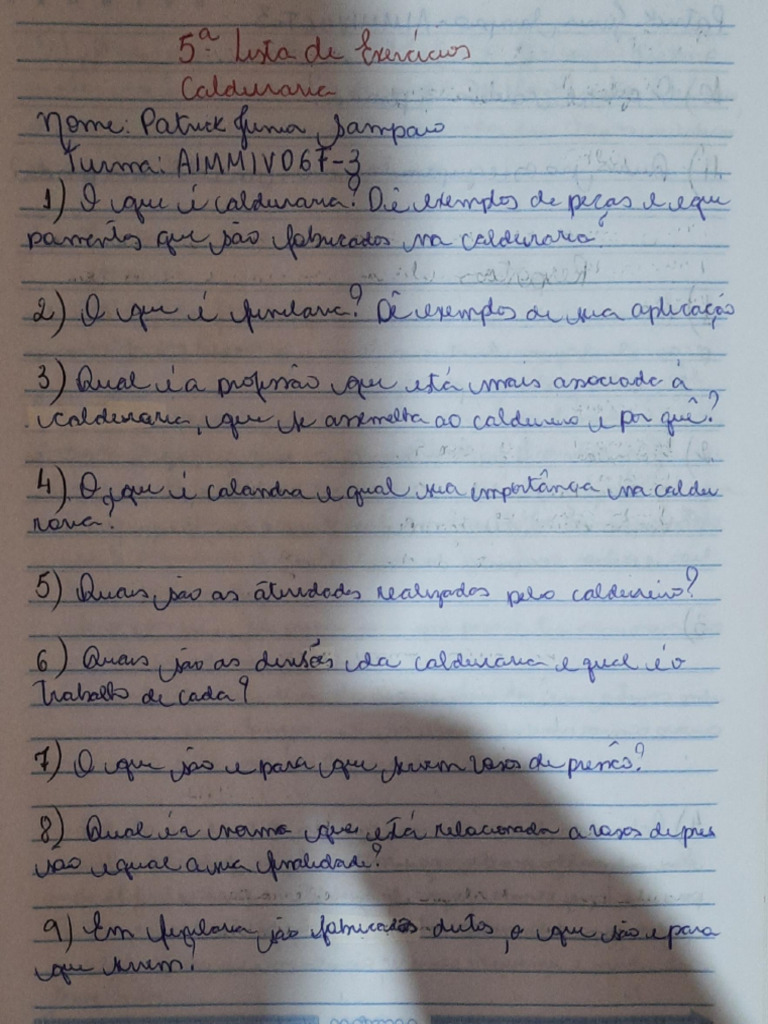 5ª Lista de Exercícios
Caldeiraria
Nome: Patrick Sampaio
Turma: A1MM1V067-3
1) O que é caldeiraria? Dê exemplos de peças e equi
pamentos que são fabricados na caldeiraria
2) O que é funilaria? Dê exemplos de sua aplicação
3) Qual é a profissão que está mais associada à
caldeiraria, que se assemelha ao caldeireiro e por quê?
4) O que é calandra e qual sua importância na caldei
raria?
5) Quais são as atividades realizadas pelo caldeireiro?
6) Quais são as divisões da caldeiraria e qual é o
trabalho de cada?
7) O que são e para que servem vasos de pressão?
8) Qual é a norma que está relacionada a vasos de pres
são e qual a sua finalidade?
9) Em funilaria são fabricados dutos, o que são e para
que servem?